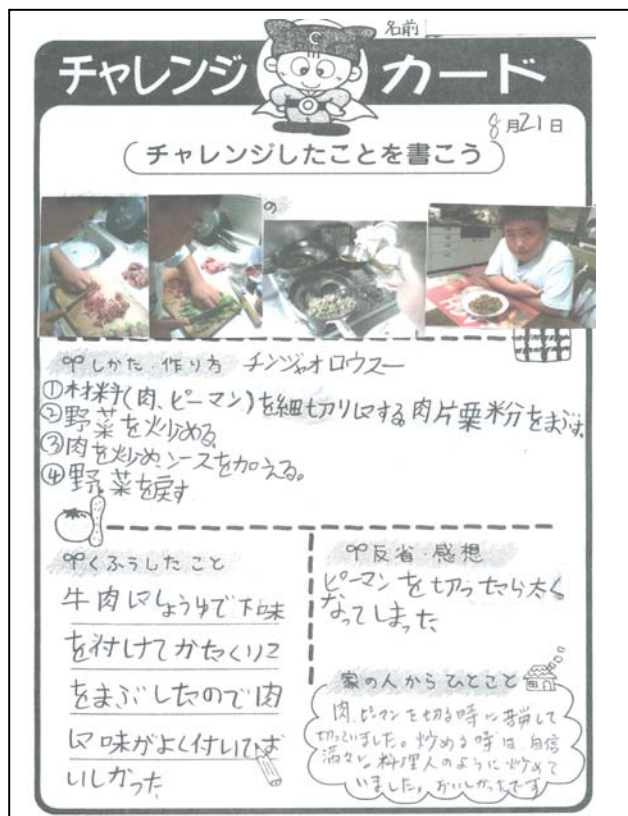 名前
チャレンジ カード
C
8月21日
チャレンジしたことを書こう
の
しかた・作り方 チンジャオロウスー
①材料(肉、ピーマン)を細切りにする肉片栗粉をまぶす。
②野菜を炒める
③肉を炒めソースを加える。
④野菜を戻す
くふうしたこと
牛肉にしょうゆで下味
を付けてかたくりこ
をまぶしたので肉
に味がよく付いてお
いしかった
反省・感想
ピーマンを切ったら太く
なってしまった
家の人からひとこと
肉、ピーマンを切る時に苦労して
切っていました。炒める時は、自信
満々な料理人のように炒めて
いました。おいしかったです